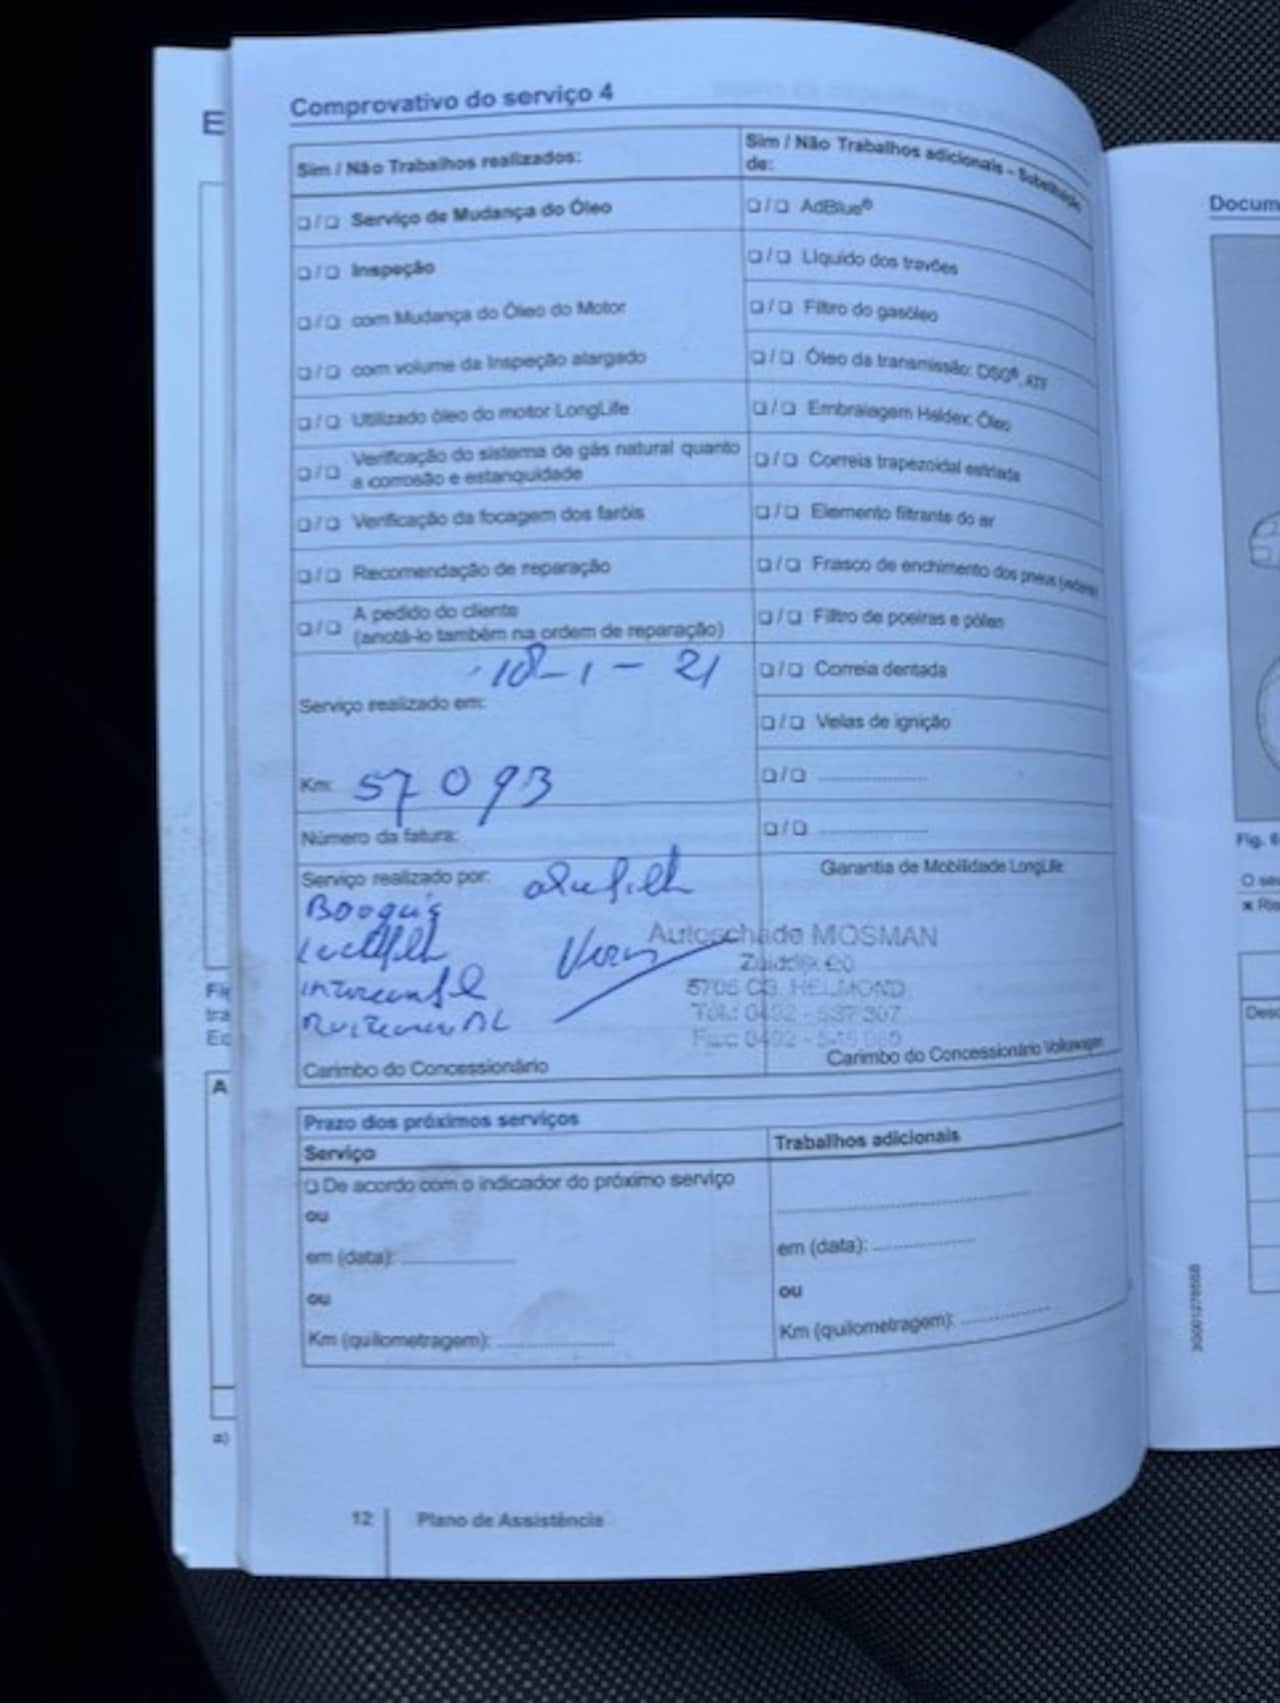 Comprovativo do serviço 4
Sim / Não Trabalhos realizados:
❑ / ❑ Serviço de Mudança do Óleo
❑ / ❑ Inspeção
❑ / ❑ com Mudança do Óleo do Motor
❑ / ❑ com volume da Inspeção alargado
❑ / ❑ Utilizado óleo do motor LongLife
❑ / ❑ Verificação do sistema de gás natural quanto
a corrosão e estanquidade
❑ / ❑ Verificação da focagem dos faróis
❑ / ❑ Recomendação de reparação
❑ / ❑ A pedido do cliente
(anotá-lo também na ordem de reparação)
18-1-21
Serviço realizado em:
Km: 57093
Número da fatura:
Serviço realizado por:
Carimbo do Concessionário
Sim / Não Trabalhos adicionais - Substituição
de:
❑ / ❑ AdBlue®
❑ / ❑ Líquido dos travões
❑ / ❑ Filtro do gasóleo
❑ / ❑ Óleo da transmissão: DSG®, ATF
❑ / ❑ Embraiagem Haldex: Óleo
❑ / ❑ Correia trapezoidal estriada
❑ / ❑ Elemento filtrante do ar
❑ / ❑ Frasco de enchimento dos pneus
❑ / ❑ Filtro de poeiras e pólen
❑ / ❑ Correia dentada
❑ / ❑ Velas de ignição
❑ / ❑ ....................
❑ / ❑ ....................
Garantia de Mobilidade LongLife
Autoschade MOSMAN
HELMOND
Carimbo do Concessionário Volkswagen
Prazo dos próximos serviços
Serviço
❑ De acordo com o indicador do próximo serviço
ou
em (data): ....................
ou
Km (quilometragem): ....................
Trabalhos adicionais
........................................
em (data): ....................
ou
Km (quilometragem): ....................
12 Plano de Assistência
Docum
Fig. 6
O seu
Desc